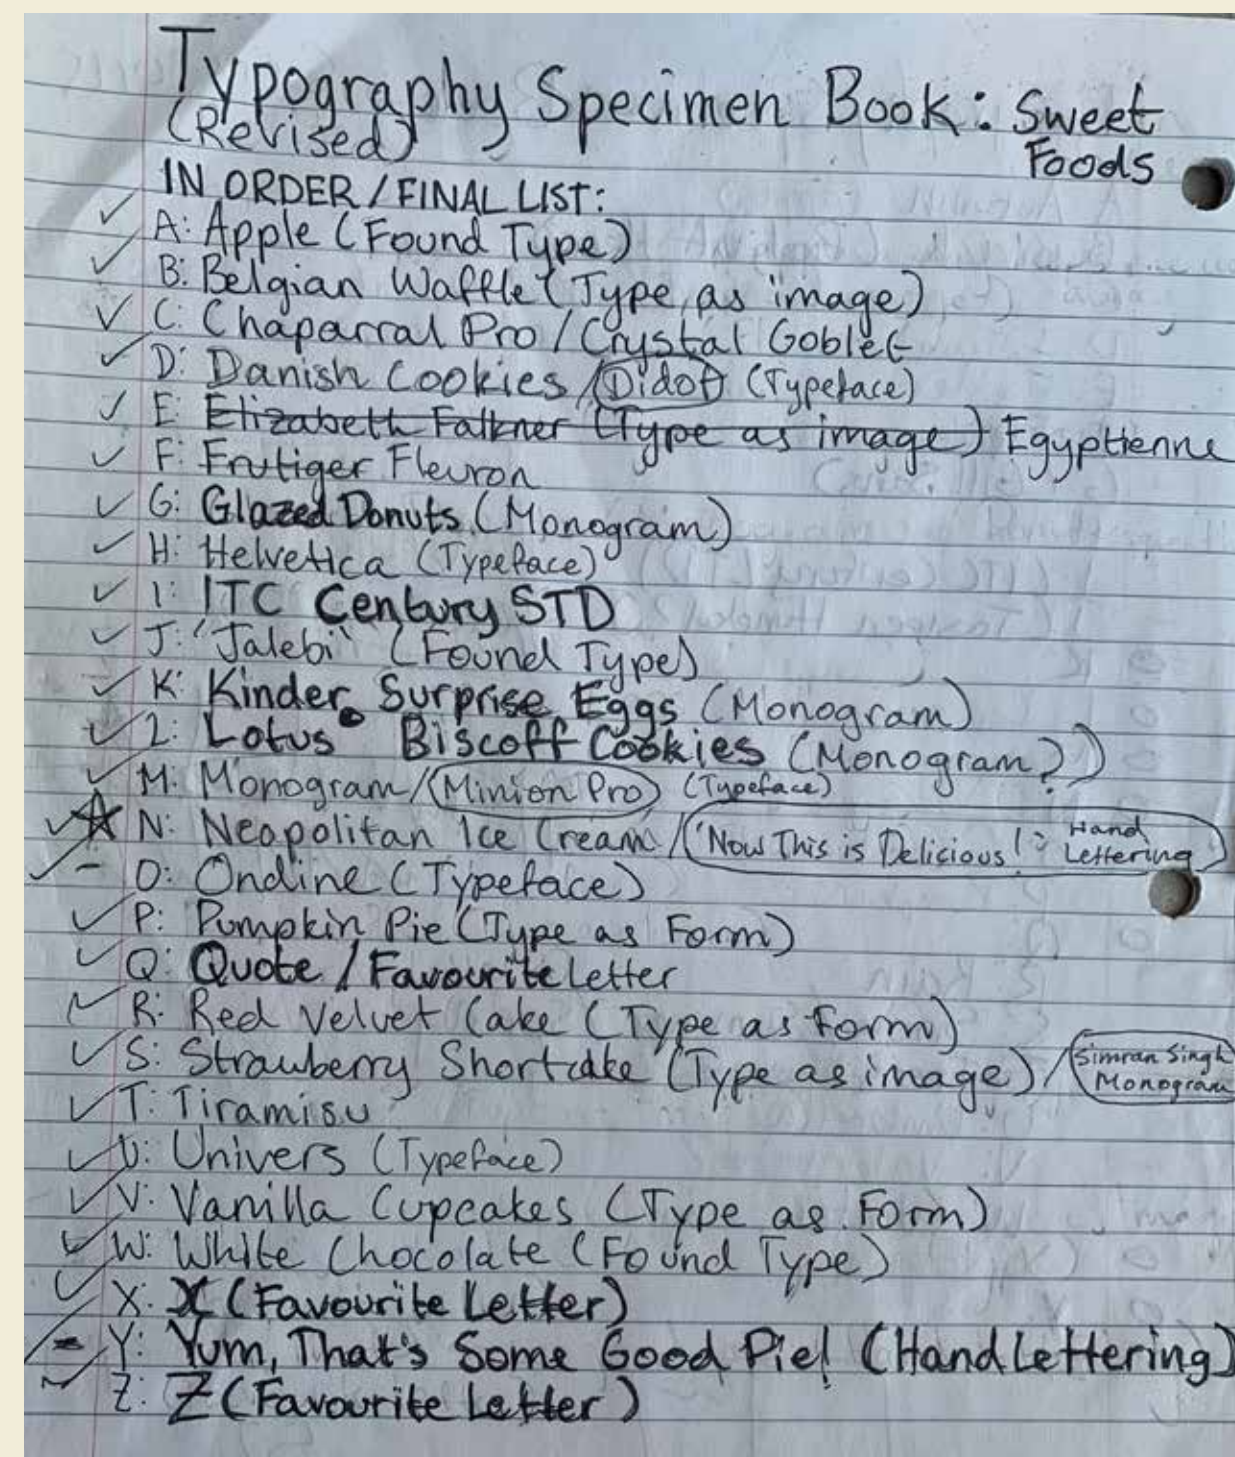 Typography Specimen Book: Sweet Foods
(Revised)
IN ORDER / FINAL LIST:
A: Apple (Found Type)
B: Belgian Waffle (Type as image)
C: Chaparral Pro / Crystal Goblet
D: Danish Cookies / Didot (Typeface)
E: Elizabeth Falkner (Type as image) Egyptienne
F: Frutiger Fleuron
G: Glazed Donuts (Monogram)
H: Helvetica (Typeface)
I: ITC Century STD
J: "Jalebi" (Found Type)
K: Kinder Surprise Eggs (Monogram)
L: Lotus Biscoff Cookies (Monogram?)
M: Monogram / Minion Pro (Typeface)
N: Neopolitan Ice Cream / 'Now This is Delicious!': Hand Lettering
O: Ondine (Typeface)
P: Pumpkin Pie (Type as Form)
Q: Quote / Favourite Letter
R: Red Velvet Cake (Type as Form)
S: Strawberry Shortcake (Type as image) / Simran Singh Monogram
T: Tiramisu
U: Univers (Typeface)
V: Vanilla Cupcakes (Type as Form)
W: White Chocolate (Found Type)
X: X (Favourite Letter)
Y: Yum, That's Some Good Pie! (Hand Lettering)
Z: Z (Favourite Letter)